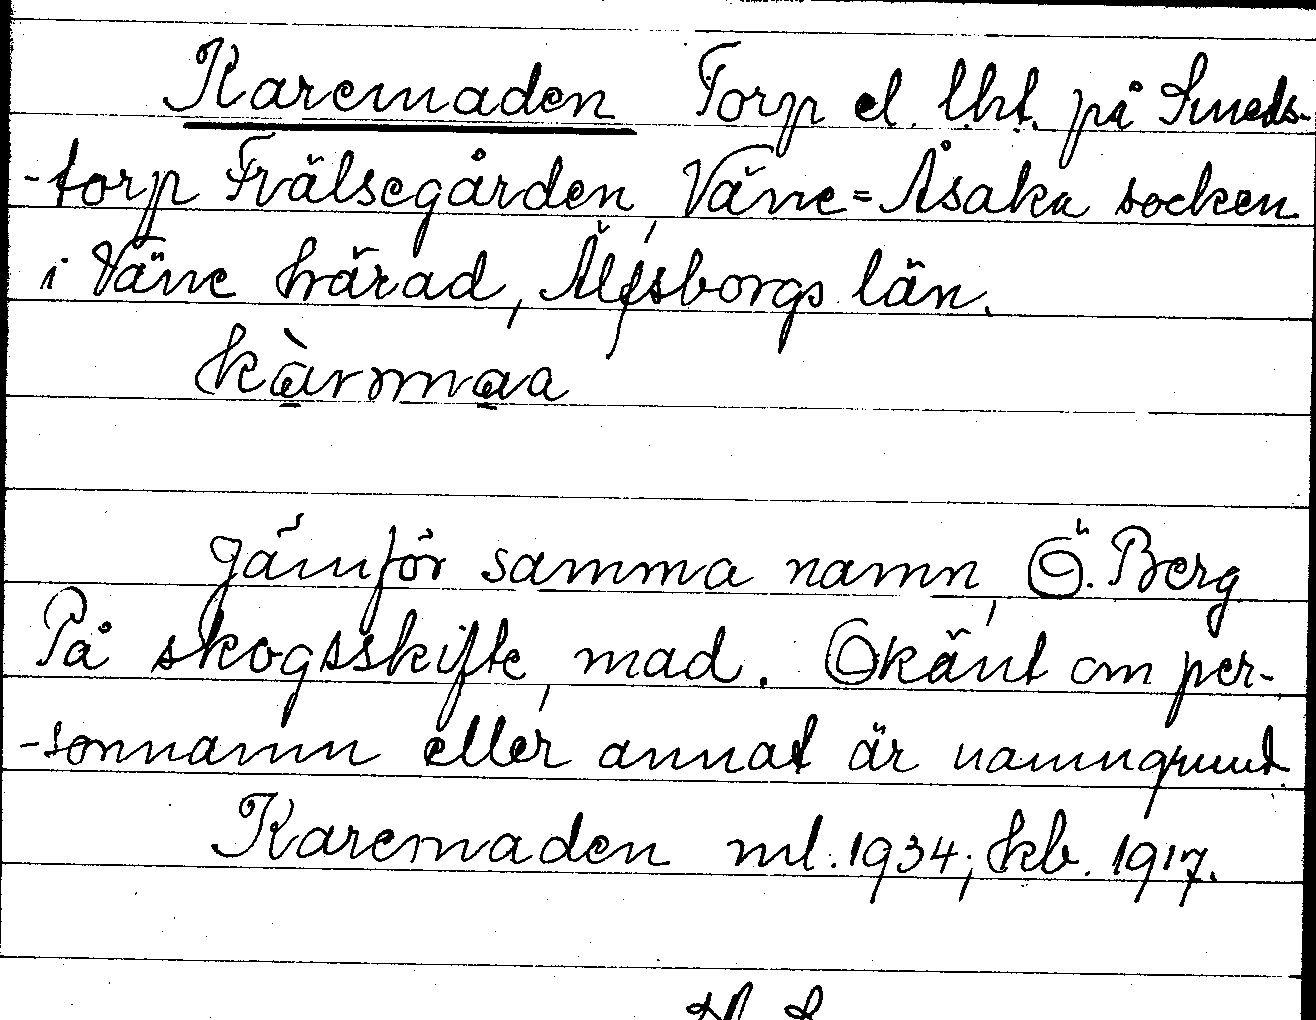 Karemaden Torp el. lht. på Smeds-
-torp Frälsegården, Väne=Åsaka socken
i Väne härad, Älfsborgs län.
kàrmaa
Jämför samma namn, Ö. Berg
På skogsskifte, mad. Okänt om per-
-sonnamn eller annat är namngrund.
Karemaden ml. 1934; kb. 1917.